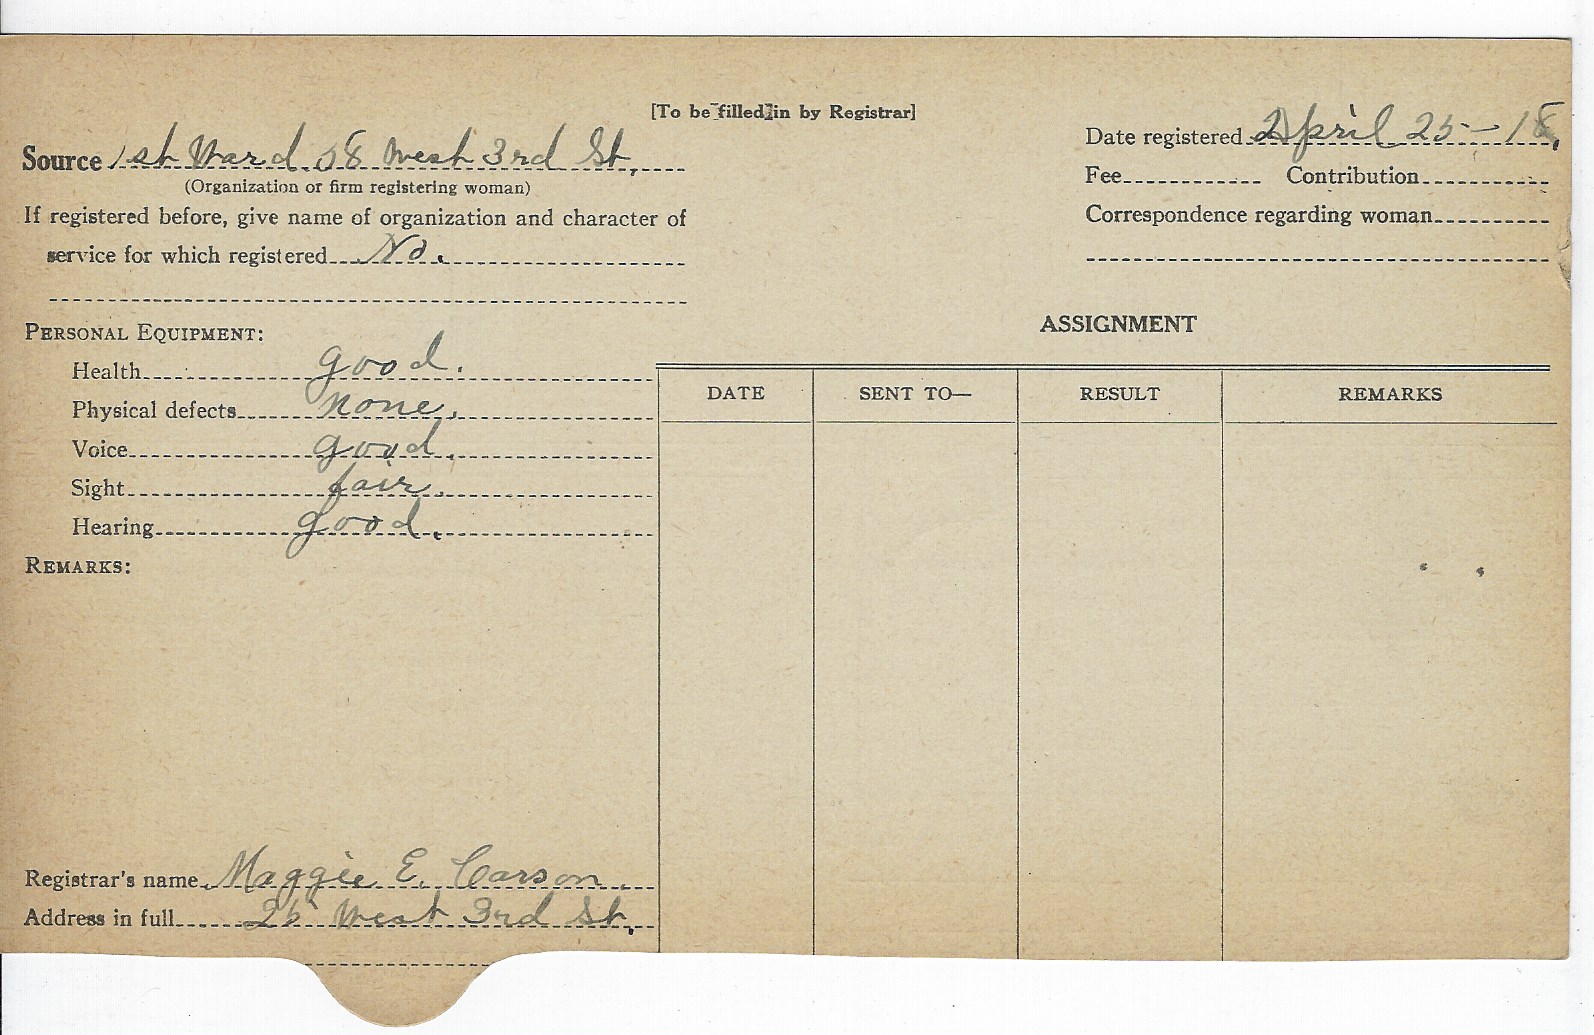 [To be filled in by Registrar]
Source 1st Ward. 58 West 3rd St,
(Organization or firm registering woman)
If registered before, give name of organization and character of
service for which registered No.
Date registered April 25-18,
Fee Contribution
Correspondence regarding woman
PERSONAL EQUIPMENT:
Health good.
Physical defects none.
Voice good.
Sight fair.
Hearing good.
REMARKS:
ASSIGNMENT
DATE SENT TO— RESULT REMARKS
Registrar's name Maggie E. Carson.
Address in full 25 West 3rd St,